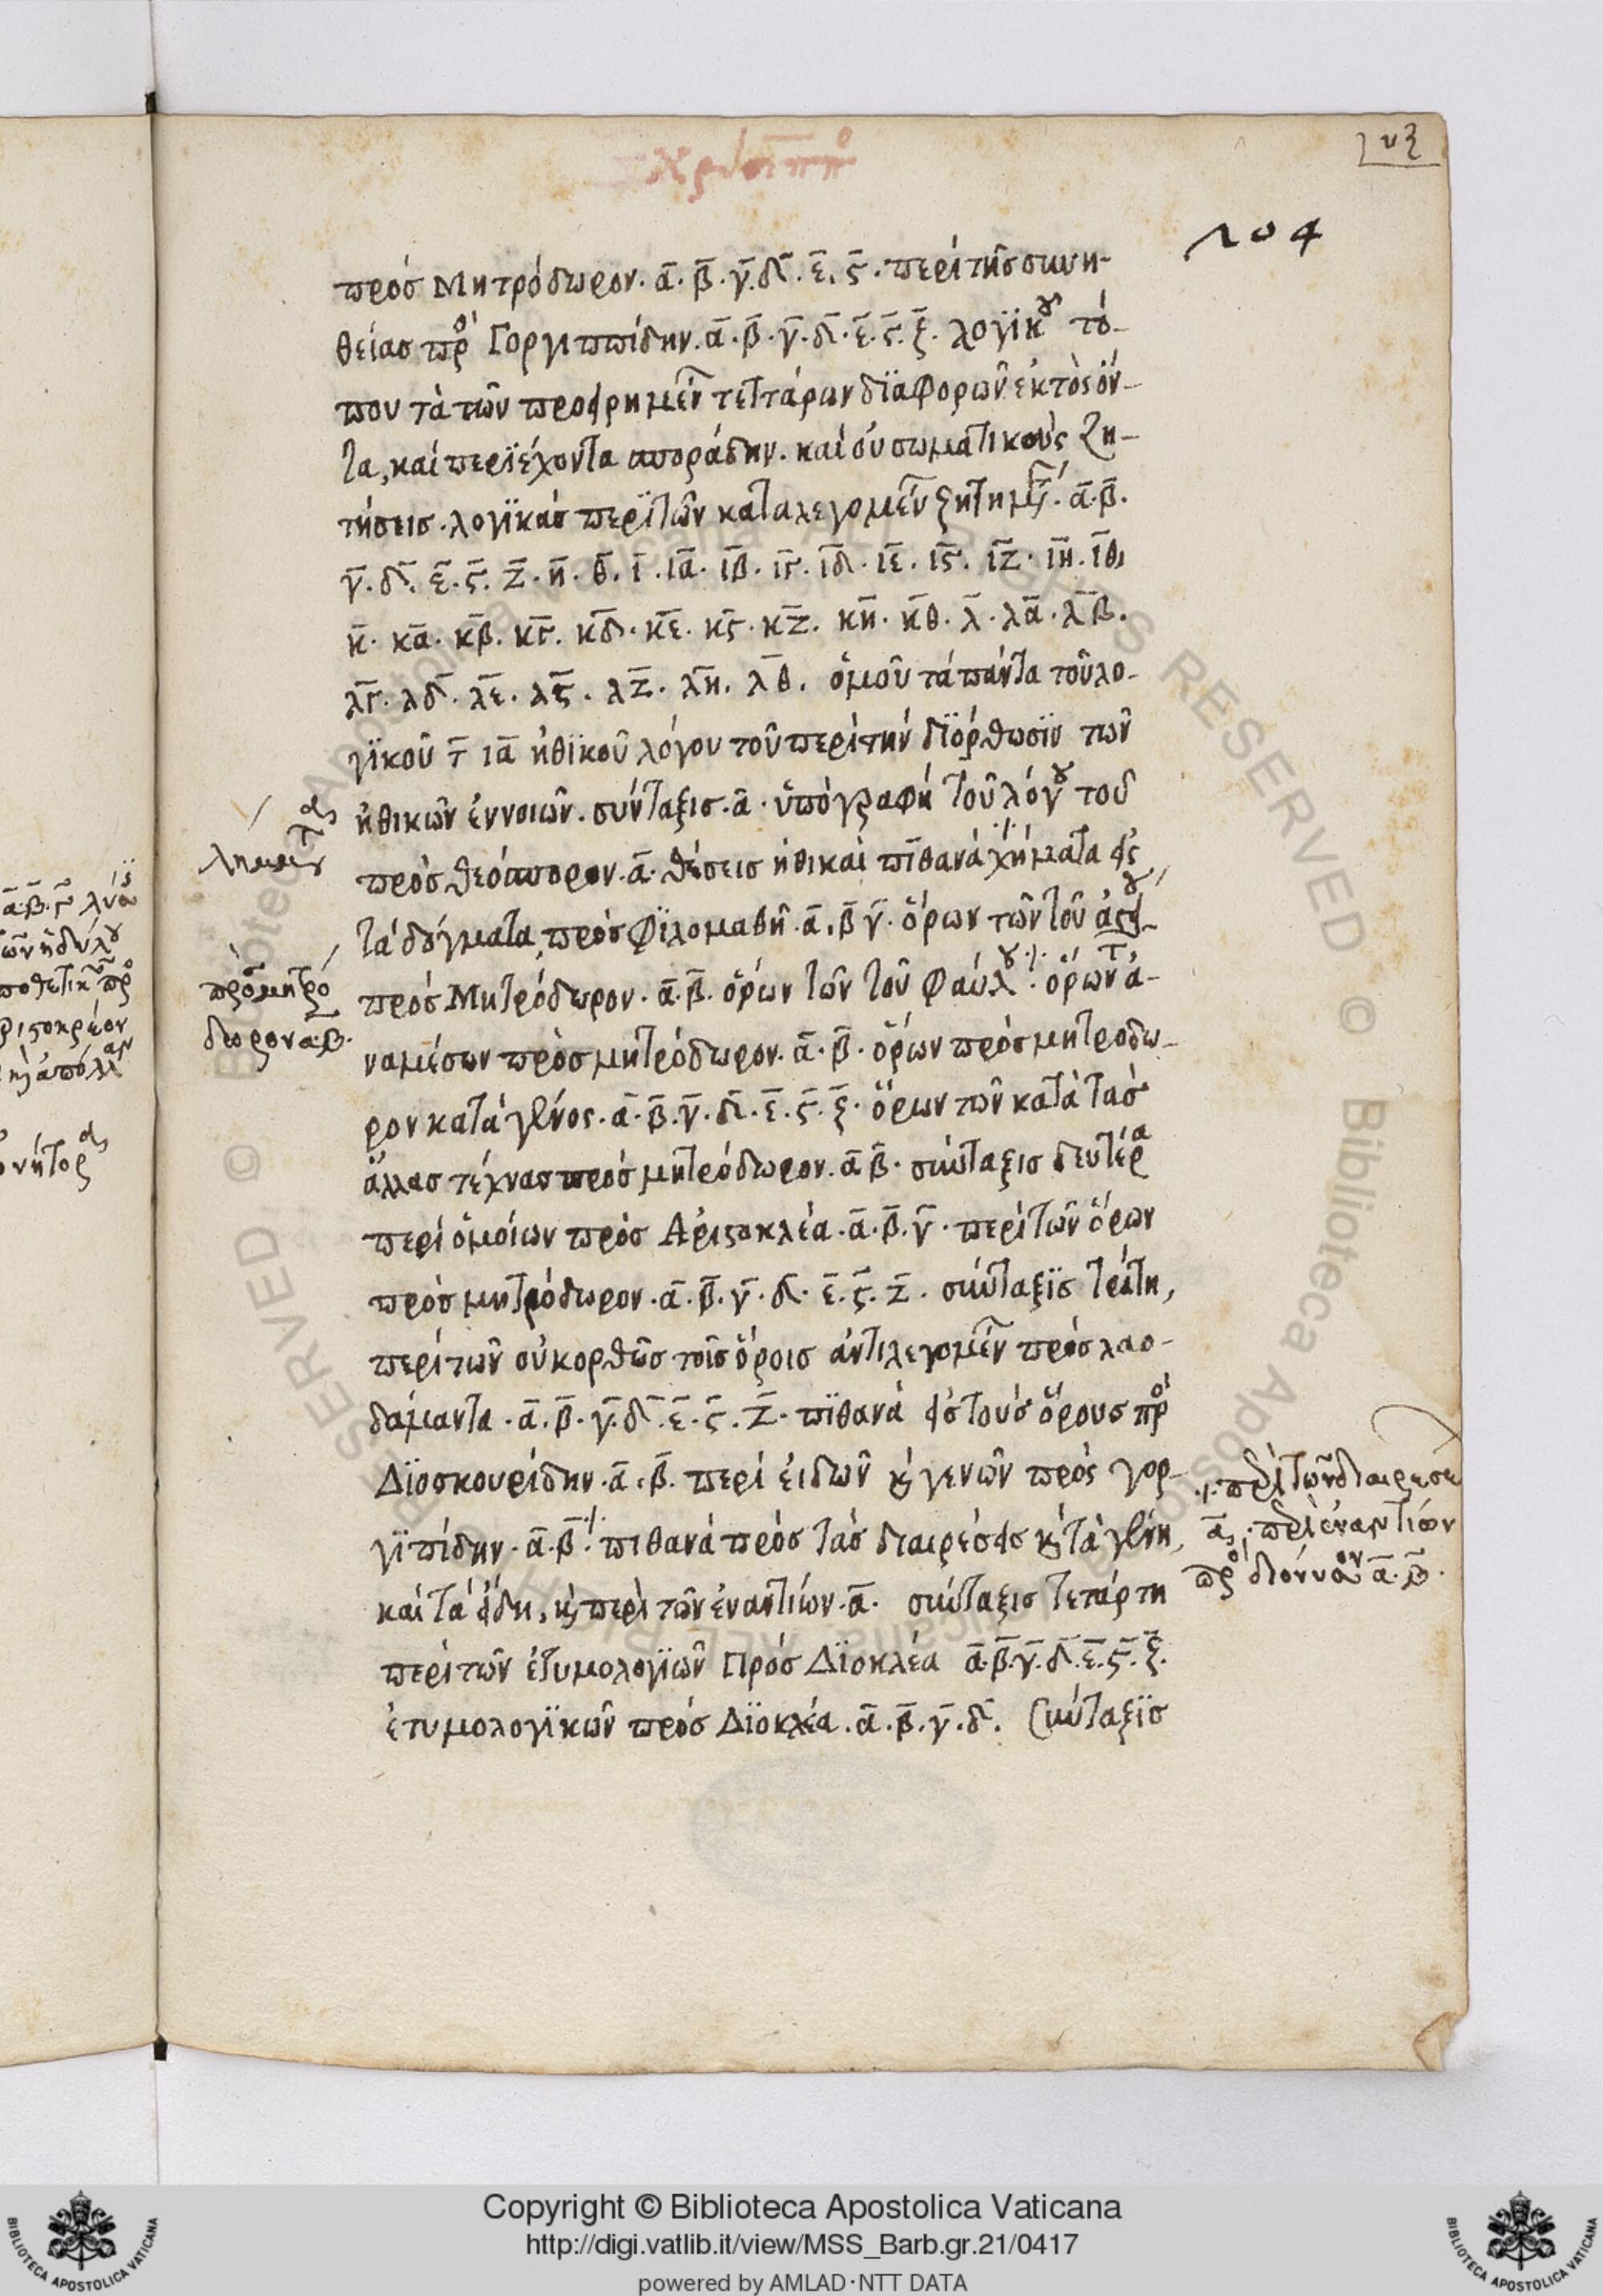 Χρύσιππο
υξ
204
πρὸσ Μητρόδωρον· α̅· β̅· γ̅· δ̅· ε̅· ς̅· περὶ τῆσ συνη-
θείασ πρὸ Γοργιππίδην· α̅· β̅· γ̅· δ̅· ε̅· ς̅· ξ̅· λογϊκου τό-
που τὰ τῶν προειρημέν τεττάρων δϊαφορῶν ἐκτὸς ὄν-
τα, καὶ περϊέχοντα σποράδην. καὶ οὐ σωματικοὺς ζη-
τήσεισ· λογϊκάσ περϊ τῶν καταλεγομέν ζητημ· α̅· β̅·
γ̅· δ̅· ε̅· ς̅· ζ̅· η̅· θ̅· ι̅· ια̅· ιβ̅· ιγ̅· ιδ̅· ιε̅· ις̅· ιζ̅· ιη̅· ιθ̅,
κ̅· κα̅· κβ̅· κγ̅· κδ̅· κε̅· κς̅· κζ̅· κη̅· κθ̅· λ̅· λα̅· λβ̅·
λγ̅· λδ̅· λε̅· λς̅· λζ̅· λη̅· λθ̅· ὁμοῦ τὰ πάντα τοῦ λο-
γϊκοῦ τ̅ ια̅ ἠθϊκοῦ λόγου τοῦ περὶ τὴν δϊόρθωσϊν τῶν
ἠθικῶν ἐννοιῶν. σύνταξισ· α̅· ὑπογραφὴ τοῦ λόγου τοῦ
πρὸσ θεόσπορον· α̅· θέσεισ ἠθικαὶ πϊθανὰ χήματα εἰς
τὰ δόγματα, πρὸσ Φϊλομαθῆ· α̅· β̅ γ̅· ὅρων τῶν τοῦ ἀστ-
πρὸσ Μητρόδωρον· α̅· β̅· ὅρων τῶν τοῦ φαύλου· ὅρων ἀ-
ναμέσων πρὸσ μητρόδωρον· α̅· β̅· ὅρων πρὸσ μητροδω-
ρον κατὰ γένος· α̅· β̅· γ̅· δ̅· ε̅· ς̅· ξ̅· ὅρων τῶν κατὰ τὰσ
ἄλλασ τέχνασ πρὸσ μητρόδωρον· α̅ β̅· σύνταξισ δευτέρα
περὶ ὁμοίων πρὸσ Αριστοκλέα· α̅· β̅· γ̅· περὶ τῶν ὅρων
πρὸσ μητρόδωρον· α̅· β̅· γ̅· δ̅· ε̅· ς̅· ζ̅· σύνταξϊσ τρίτη,
περὶ τῶν οὐκορθῶσ τοῖσ ὅροισ ἀντιλεγομέν πρὸσ λαο-
δάμαντα· α̅· β̅· γ̅· δ̅· ε̅· ς̅· ζ̅· πϊθανὰ εἰσ τοὺσ ὅρουσ πρὸ
Δϊοσκουρίδην· α̅· β̅· περὶ εἰδῶν ϗ γενῶν πρὸς γορ-
γϊπίδην· α̅· β̅· πιθανὰ πρὸσ τὰσ διαιρέσεισ ϗ τὰ γένη,
καὶ τὰ εἴδη, ϗ περὶ τῶν ἐναντίων· α̅· σύνταξισ τετάρτη
περὶ τῶν ἐτυμολογϊῶν Πρὸσ Δϊοκλέα α̅· β̅· γ̅· δ̅· ε̅· ς̅· ξ̅·
ἐτυμολογϊκῶν πρὸσ Δϊοκλέα· α̅· β̅· γ̅· δ̅· Σύνταξϊσ
πρὸσ μητρό
δωρον α̅· β̅·
περὶ τῶν διαιρεσε
α̅· περὶ ἐναντίων
πρὸ διονυ α̅· β̅·
Copyright © Biblioteca Apostolica Vaticana
http://digi.vatlib.it/view/MSS_Barb.gr.21/0417
powered by AMLAD·NTT DATA
BIBLIOTECA APOSTOLICA VATICANA
BIBLIOTECA APOSTOLICA VATICANA